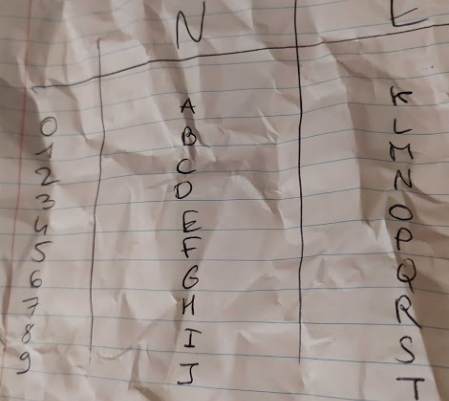 N L
0 A K
1 B L
2 C M
3 D N
4 E O
5 F P
6 G Q
7 H R
8 I S
9 J T